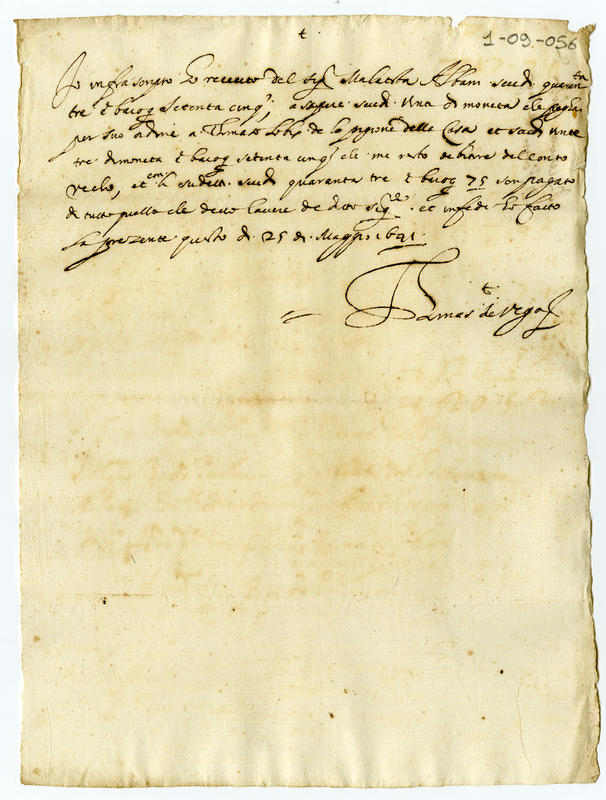 1-09-056
t
Io infrascripto ho receuto del sigr Malatesta Albani scudi quaranta
tre e baioq setenta cinq; a sapere scudi vinte di moneta che pagha
per suo ordine a Thomas Lobis de la pigione della Casa et scudi vinte
tre di moneta e baioq setenta cinq che me resto debitore del conto
vecho, et con li sudetti scudi quaranta tre e baioq 75 son pagato
di tutto quello che devo havere de ditto sigre et in fede ho fatto
la prezente questo di 25 di Maggio 1641.
Tomas de Vega